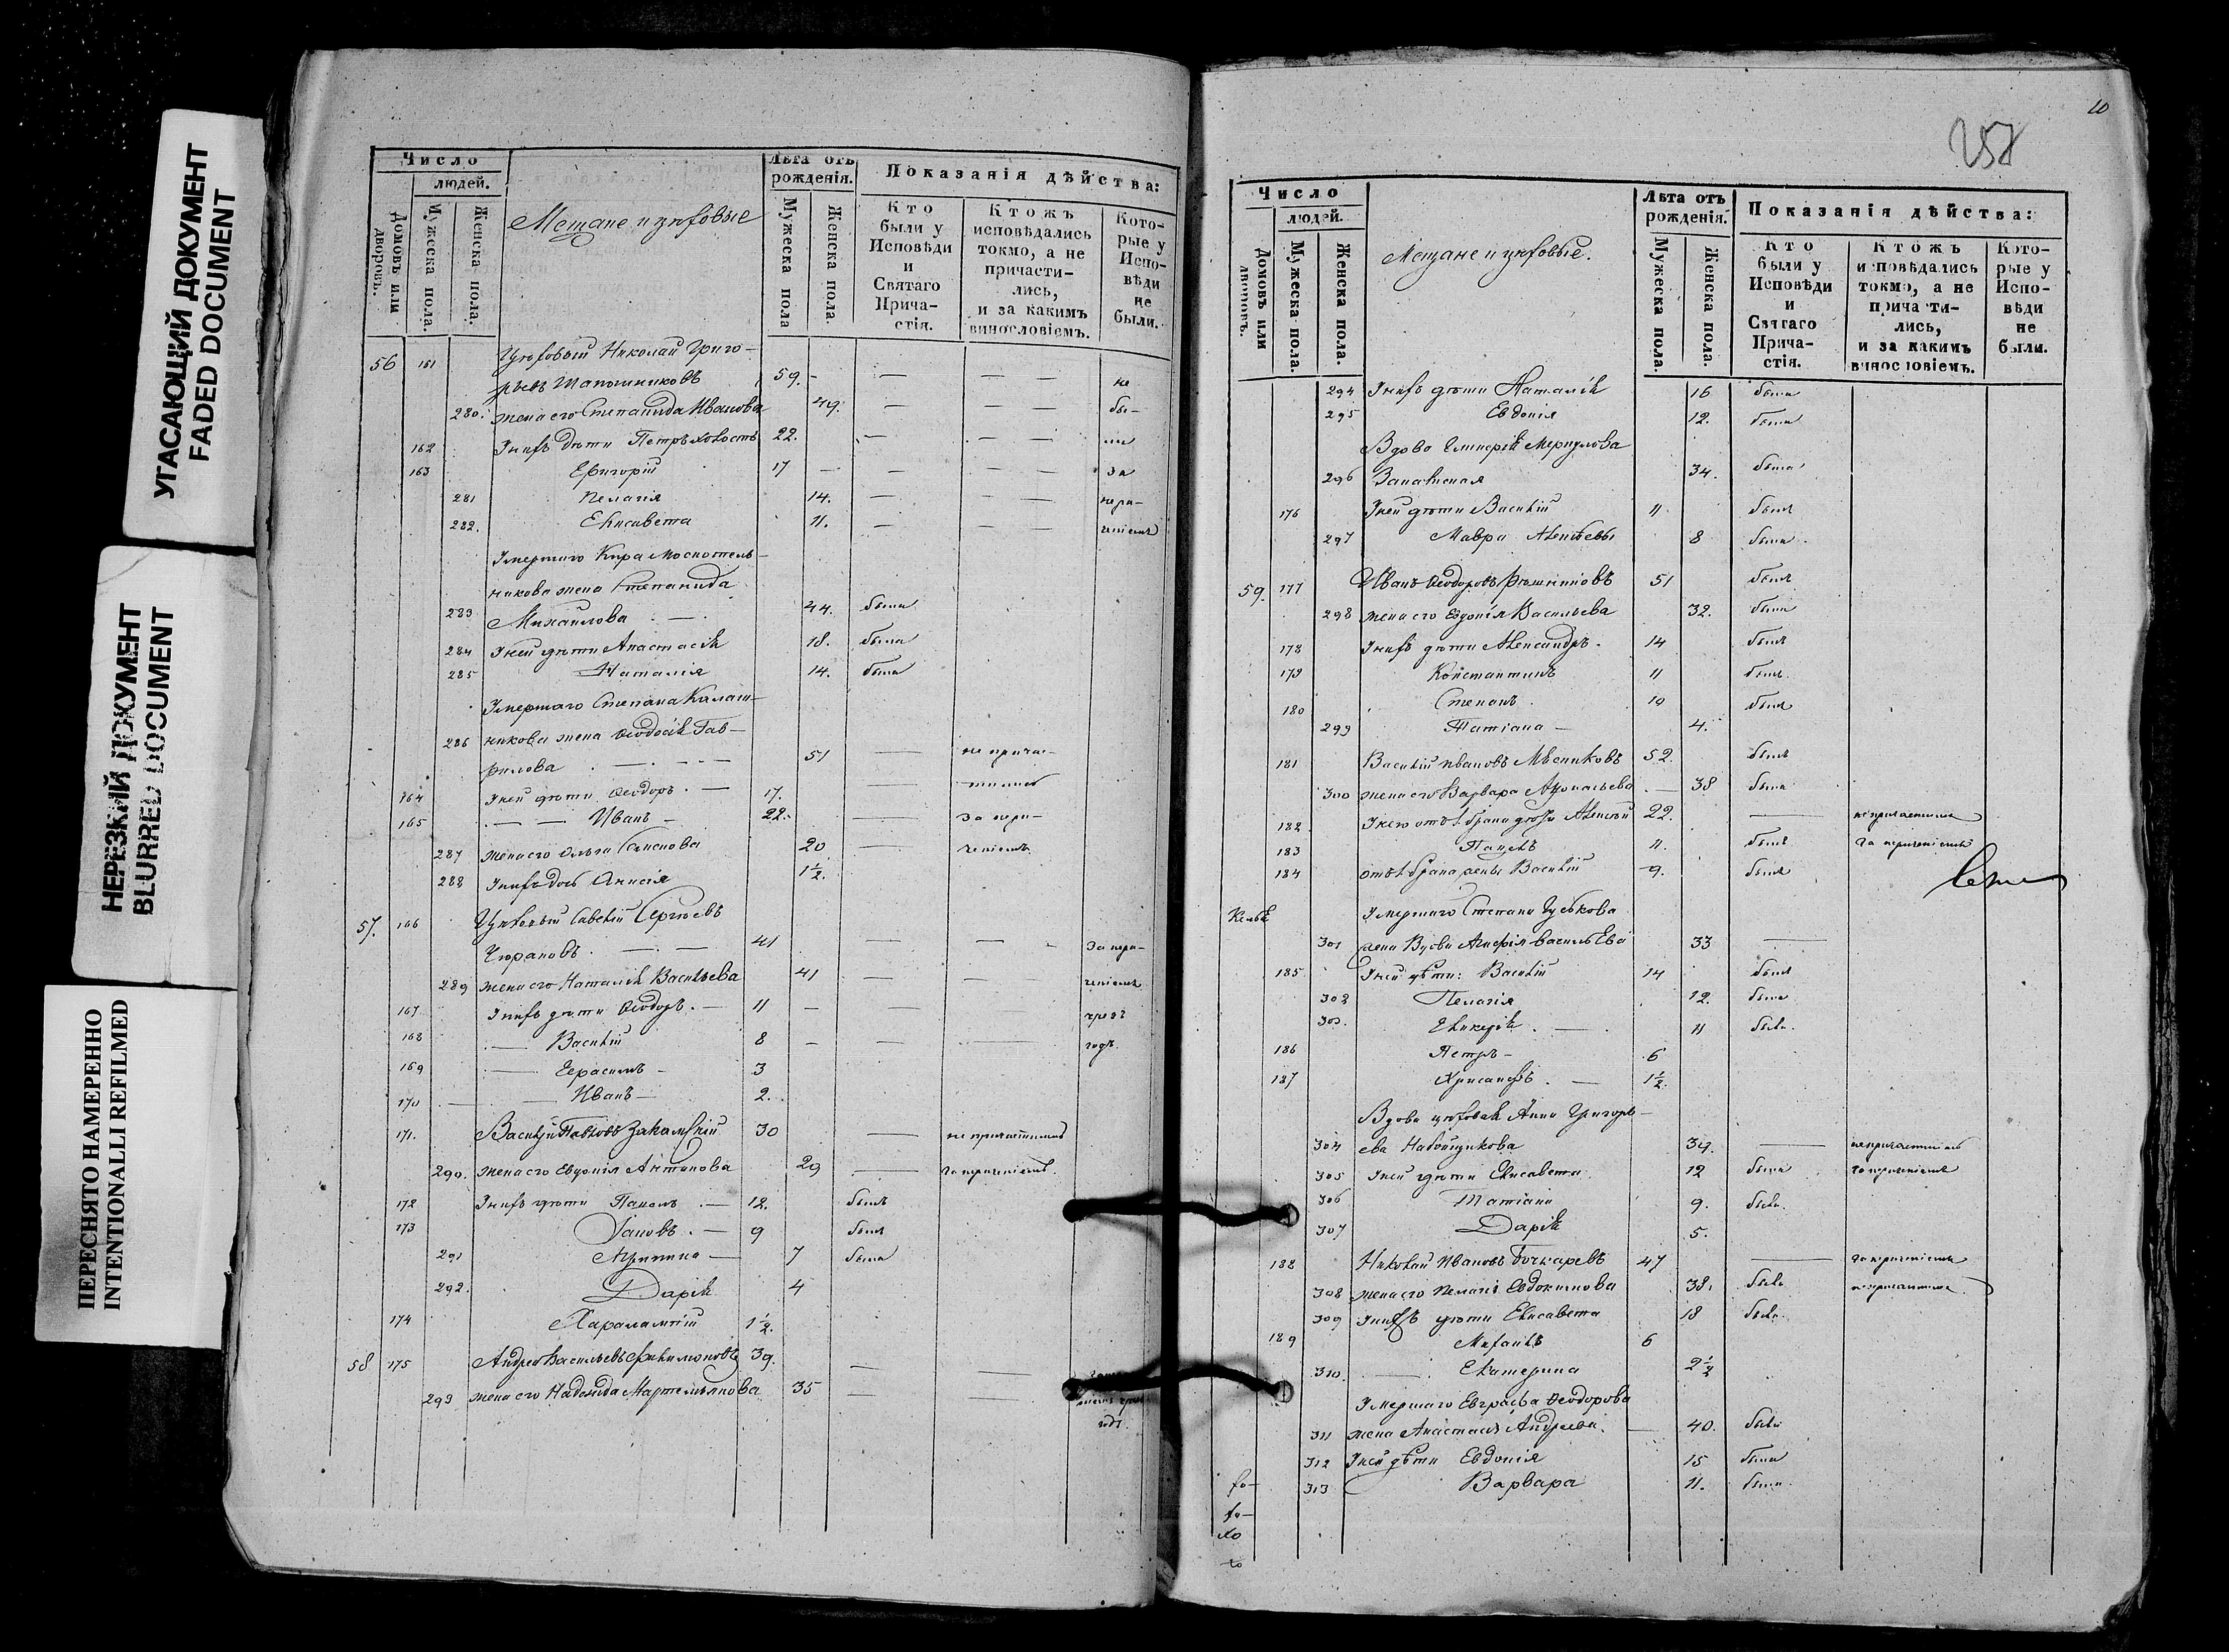 УГАСАЮЩИЙ ДОКУМЕНТ
FADED DOCUMENT
НЕРЕЗКИЙ ДОКУМЕНТ
BLURRED DOCUMENT
ПЕРЕСНЯТО НАМЕРЕННО
INTENTIONALLI REFILMED
Число
людей.
Домовъ или дворовъ.
Мужеска пола.
Женска пола.
Мещане и цеховые
Лѣта отъ рожденія.
Мужеска пола
Женска пола.
Показанія дѣйства:
Кто были у Исповѣди и Святаго Прича-стія.
Ктожъ исповѣдались токмо, а не причасти-лись, и за какимъ винословіемъ.
Кото-рые у Испо-вѣди не были.
56 161 Цеховый Николай Григо-
рьевъ 59. — — — не
280. жена его Степанида Иванова 49. — — — бы-
162 У нихъ дѣти Петръ холостъ 22. — — — ли
163 Григорій 17 — — — за
281 Пелагія 14. — — — нера-
282. Елисавета 11. — — — ченіемъ
Умершаго Кира
жена Степанида
283 Михайлова 44. была
284 У ней дѣти Анастасія 18. была
285 Наталія 14. была
Умершаго Степана Калаш-
286 никова жена Ѳеодосія Гав-
рилова 51 — не причас-
164 У ней дѣти Ѳеодоръ 17. — тились
165 Иванъ 22. — за нера-
287 жена его Ольга Семенова 20 — ченіемъ
288 У нихъ дочь Анисія 1½.
57. 166 Цеховый Савелій Сергѣевъ
41 — — за нера-
289 жена его Наталія Васильева 41 — — ченіемъ
167 У нихъ дѣти Ѳеодоръ 11 — — — чрезъ
168 Василій 8 — — — годъ.
169 Герасимъ 3
170 Иванъ 2.
171. Василій Павловъ 30 — не причастились
290. жена его Евдокія Антипова 29 — за нераченіемъ.
172 У нихъ дѣти Павелъ 12. былъ
173 Іаковъ 9 былъ
291 Агрипина 7 была
292. Дарія 4
174 Харалампій 1½.
58 175 Андрей Васильевъ Филимоновъ 39. — —
293 жена его Мартемьянова 35 — —
годъ.
10
258
Число
людей.
Домовъ или дворовъ.
Мужеска пола.
Женска пола.
Мещане и цеховые.
Лѣта отъ рожденія.
Мужеска пола.
Женска пола.
Показанія дѣйства:
Кто были у Исповѣди и Святаго Прича-стія.
Ктожъ исповѣдались токмо, а не причасти-лись, и за какимъ винословіемъ.
Кото-рые у Испо-вѣди не были.
294 У нихъ дѣти Наталія 16 была
295 Евдокія 12. была
Вдова Гликерія Меркулова
296 34. была
176 У ней дѣти Василій 11 былъ
297 Мавра Алексѣевы 8 была
59. 177 Иванъ Ѳеодоровъ 51 былъ
298 жена его Евдокія Васильева 32. была
178 У нихъ дѣти Александръ 14 былъ
179 Константинъ 11 былъ
180 Степанъ 10 былъ
299 Татіана 4.
181 Василій Ивановъ Мѣсниковъ 52. былъ
300 жена его Варвара 38 была
182 У него отъ 1 брака дѣти Алексѣй 22. — не причастился
183 Павелъ 11. былъ за нераченіемъ
184 отъ 1 брака жены Василій 9. былъ
Умершаго Степана
301 жена Вдова Васильева 33 —
185 У ней дѣти: Василій 14 былъ
302 Пелагія 12. была
303. Гликерія 11 была
186 Петръ 6
187 Хрисанфъ 1½.
Вдова цеховая Анна Григорь-
304 ева 39. — не причастилась
305 У ней дѣти Елисавета 12 была за нераченіемъ
306 Татіана 9. была
307 Дарія 5.
188 Николай Ивановъ Бочкаревъ 47 — за нераченіемъ
308 жена его Пелагія Евдокимова 38. была не причастился
309 У нихъ дѣти Елисавета 18 была
189 Михаилъ 6
310. Екатерина 2½
Умершаго Евграфа Ѳеодорова
311 жена Анастасія Андреева 40. была
312 У ней дѣти Евдокія 15 была
313 Варвара 11. была